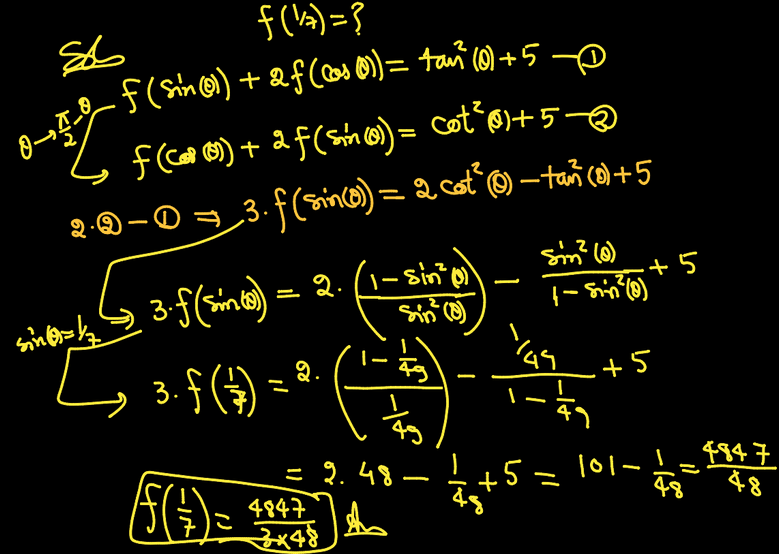 f(1/7)=?
Sol
f(sinθ) + 2f(cosθ) = tan²(θ)+5 —①
θ→π/2-θ
f(cosθ) + 2f(sinθ) = cot²(θ)+5 —②
2·②-① ⇒ 3·f(sin(θ)) = 2cot²(θ) - tan²(θ)+5
3·f(sinθ) = 2·((1-sin²(θ))/(sin²(θ))) - sin²(θ)/(1-sin²(θ)) + 5
sinθ=1/7
3·f(1/7) = 2·((1-1/49)/(1/49)) - (1/49)/(1-1/49) + 5
= 2·48 - 1/48 + 5 = 101 - 1/48 = 4847/48
f(1/7) = 4847/(3×48)